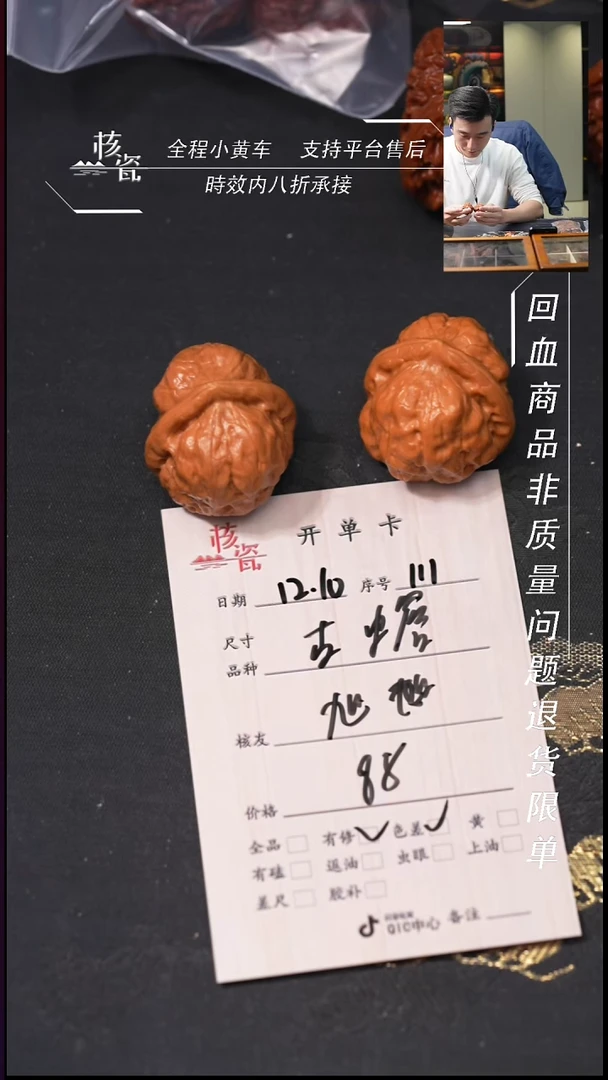 核瓷
全程小黄车 支持平台售后
時效内八折承接
回血商品非质量问题退货限单
核瓷
开单卡
日期 12.10 序号 111
尺寸
品种
核友
价格 98
全品 有修 色差 黄
有磕 退油 虫眼 上油
差尺 胶补
QIC中心 备注